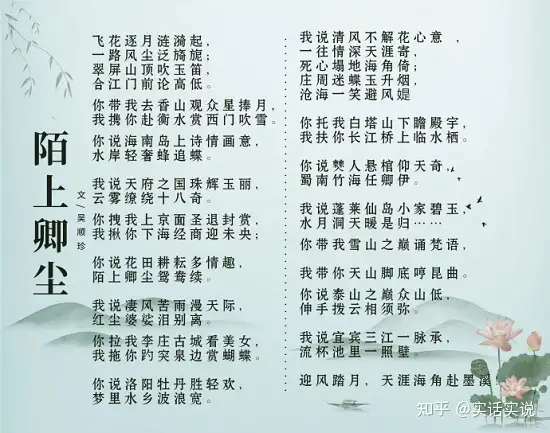 陌上卿尘
文/吴顺珍
飞花逐月涟漪起，
一路风尘泛旖旎；
翠屏山顶吹玉笛，
合江门前论高低。
你带我去香山观众星捧月，
我携你赴衡水赏西门吹雪。
你说海南岛上诗情画意，
水岸轻奢蜂追蝶。
我说天府之国珠辉玉丽，
云雾缭绕十八奇。
你拽我上京面圣退封赏，
我揪你下海经商迎未央；
你说花田耕耘多情趣，
陌上卿尘鸳鸯续。
我说凄风苦雨漫天际，
红尘婆娑泪别离。
你拉我李庄古城看美女，
我拖你趵突泉边赏蝴蝶。
你说洛阳牡丹胜轻欢，
梦里水乡波浪宽。
我说清风不解花心意，
一往情深天涯寄，
死心塌地海角倚；
庄周迷蝶玉升烟，
沧海一笑避风媞
你托我白塔山下瞻殿宇，
我扶你长江桥上临水栖。
你说僰人悬棺仰天奇，
蜀南竹海任卿伊。
我说蓬莱仙岛小家碧玉，
水月洞天暖是归……
你带我雪山之巅诵梵语，
我带你天山脚底哼昆曲。
你说泰山之巅众山低，
伸手拨云相须弥。
我说宜宾三江一脉承，
流杯池里一照壁。
迎风踏月，天涯海角赴墨溪
知乎 @实话实说